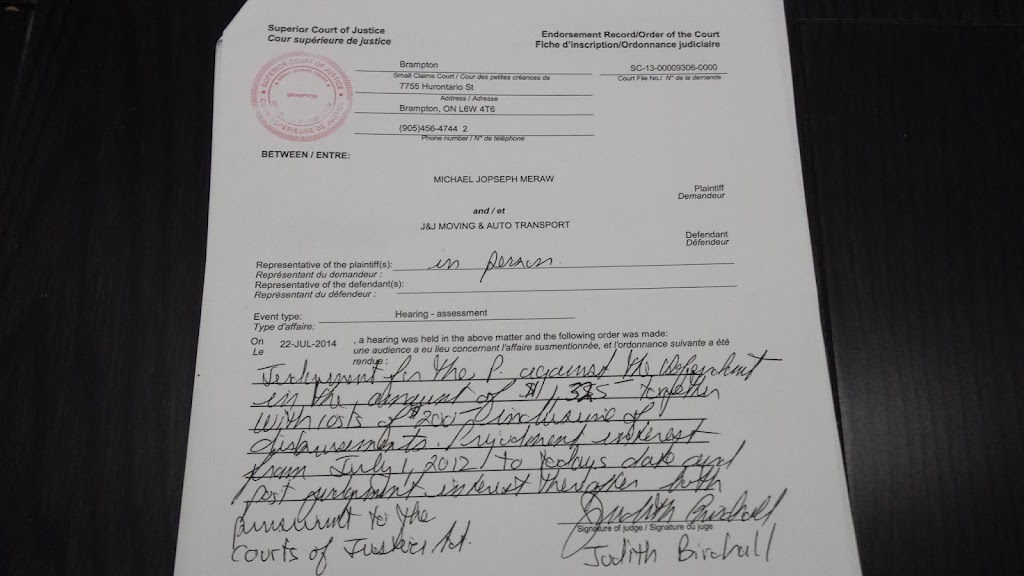 Superior Court of Justice
Cour supérieure de justice
Endorsement Record/Order of the Court
Fiche d'inscription/Ordonnance judiciaire
SUPERIOR COURT OF JUSTICE
BRAMPTON
COUR SUPÉRIEURE DE JUSTICE
Brampton
Small Claims Court / Cour des petites créances de
7755 Hurontario St
Address / Adresse
Brampton, ON L6W 4T6
(905)456-4744 2
Phone number / N° de téléphone
SC-13-00009306-0000
Court File No./ N° de la demande
BETWEEN / ENTRE:
MICHAEL JOPSEPH MERAW
Plaintiff
Demandeur
and / et
J&J MOVING & AUTO TRANSPORT
Defendant
Défendeur
Representative of the plaintiff(s): in person.
Représentant du demandeur :
Representative of the defendant(s):
Représentant du défendeur :
Event type: Hearing - assessment
Type d'affaire:
On 22-JUL-2014 , a hearing was held in the above matter and the following order was made:
Le une audience a eu lieu concernant l'affaire susmentionnée, et l'ordonnance suivante a été
rendue :
Judgment for the P. against the Defendant
in the amount of together
with costs of $200 inclusive of
disbursements. Prejudgment interest
from July 1, 2012 to todays date and
post judgment interest thereafter both
pursuant to the
Courts of Justice Act.
Judith Birchall
Signature of judge / Signature du juge
Judith Birchall